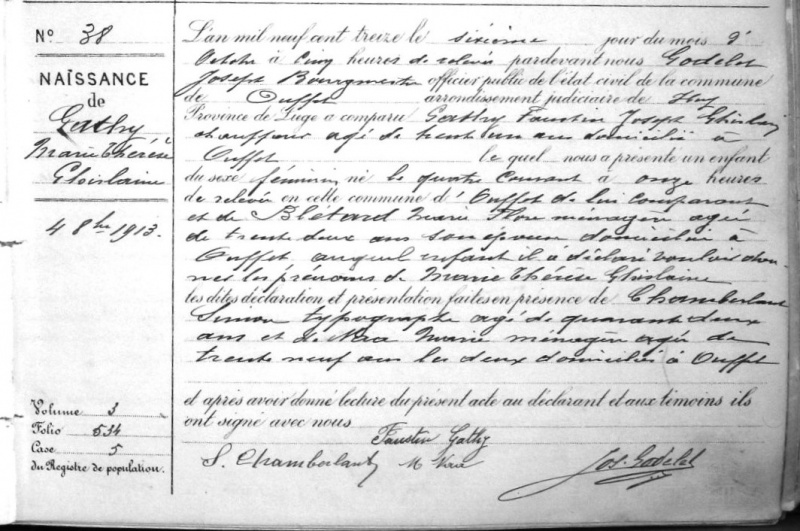 No 38
NAÏSSANCE
de
Gathy
Marie Thérèse
Ghislaine
4 8bre 1913.
Volume 3
Folio 534
Case 5
du Registre de population.
L'an mil neuf cent treize le sixième jour du mois d'
Octobre à cinq heures de relevée pardevant nous Godelet
Joseph Bourgmestre officier public de l'état civil de la commune
de Ouffet arrondissement judiciaire de Huy
Province de Liège a comparu Gathy Faustin Joseph Ghislain
chauffeur agé de trente un ans domicilié à
Ouffet le quel nous a présenté un enfant
du sexe féminin, né le quatre courant à onze heures
de relevée en cette commune d'Ouffet de lui comparant
et de Blétard Marie ménagère agée
de trente deux ans son épouse domiciliée à
Ouffet auquel enfant il a déclaré vouloir don-
ner les prénoms de Marie Thérèse Ghislaine
les dites déclaration et présentation faites en présence de Chamberlant
Simon typographe agé de quarant deux
ans et de Marie ménagère agée de
trente neuf ans les deux domiciliés à Ouffet
et après avoir donné lecture du présent acte au déclarant et aux témoins ils
ont signé avec nous
Faustin Gathy
S. Chamberlant M Jos. Godelet